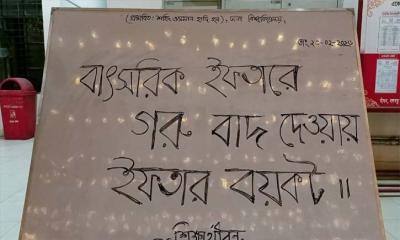 (প্রস্তাবিত: শহীদ ওসমান হাদি হল), ঢাকা বিশ্ববিদ্যালয়,
বাৎসরিক ইফতারে
গরু বাদ দেওয়ায়
ইফতার বয়কট ॥
শিক্ষার্থীবৃন্দ,